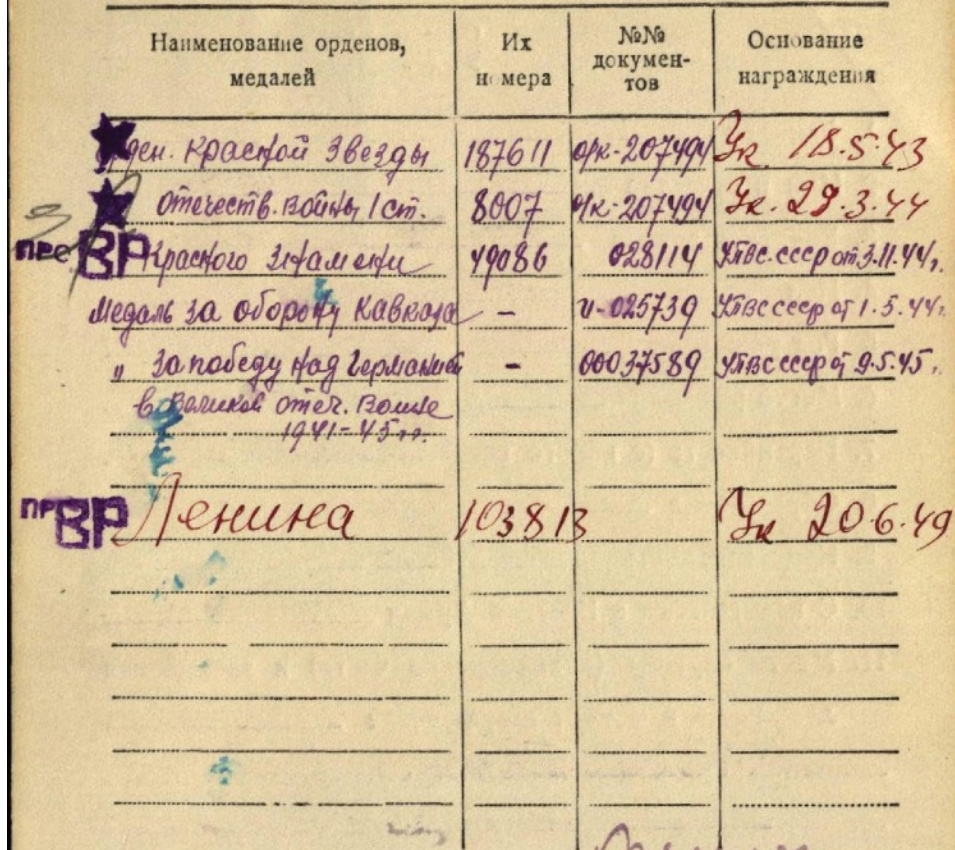 Наименование орденов, медалей Их номера №№ документов Основание награждения
Орден. Красной Звезды 187611 орк-207494 Ук. 18.5.43
Отечеств. войны 1 ст. 8007 207494 Ук. 29.3.44
ВР Красного Знамени 49086 028114 УПВС.СССР от 3.11.44г.
Медаль за оборону Кавказа - и-025739 УПВС СССР от 1.5.44г.
" За победу над Германией - 0037589 УПВС СССР от 9.5.45г.
в Великой отеч. войне
1941-45 гг.
ВР Ленина 103813 Ук 20.6.49